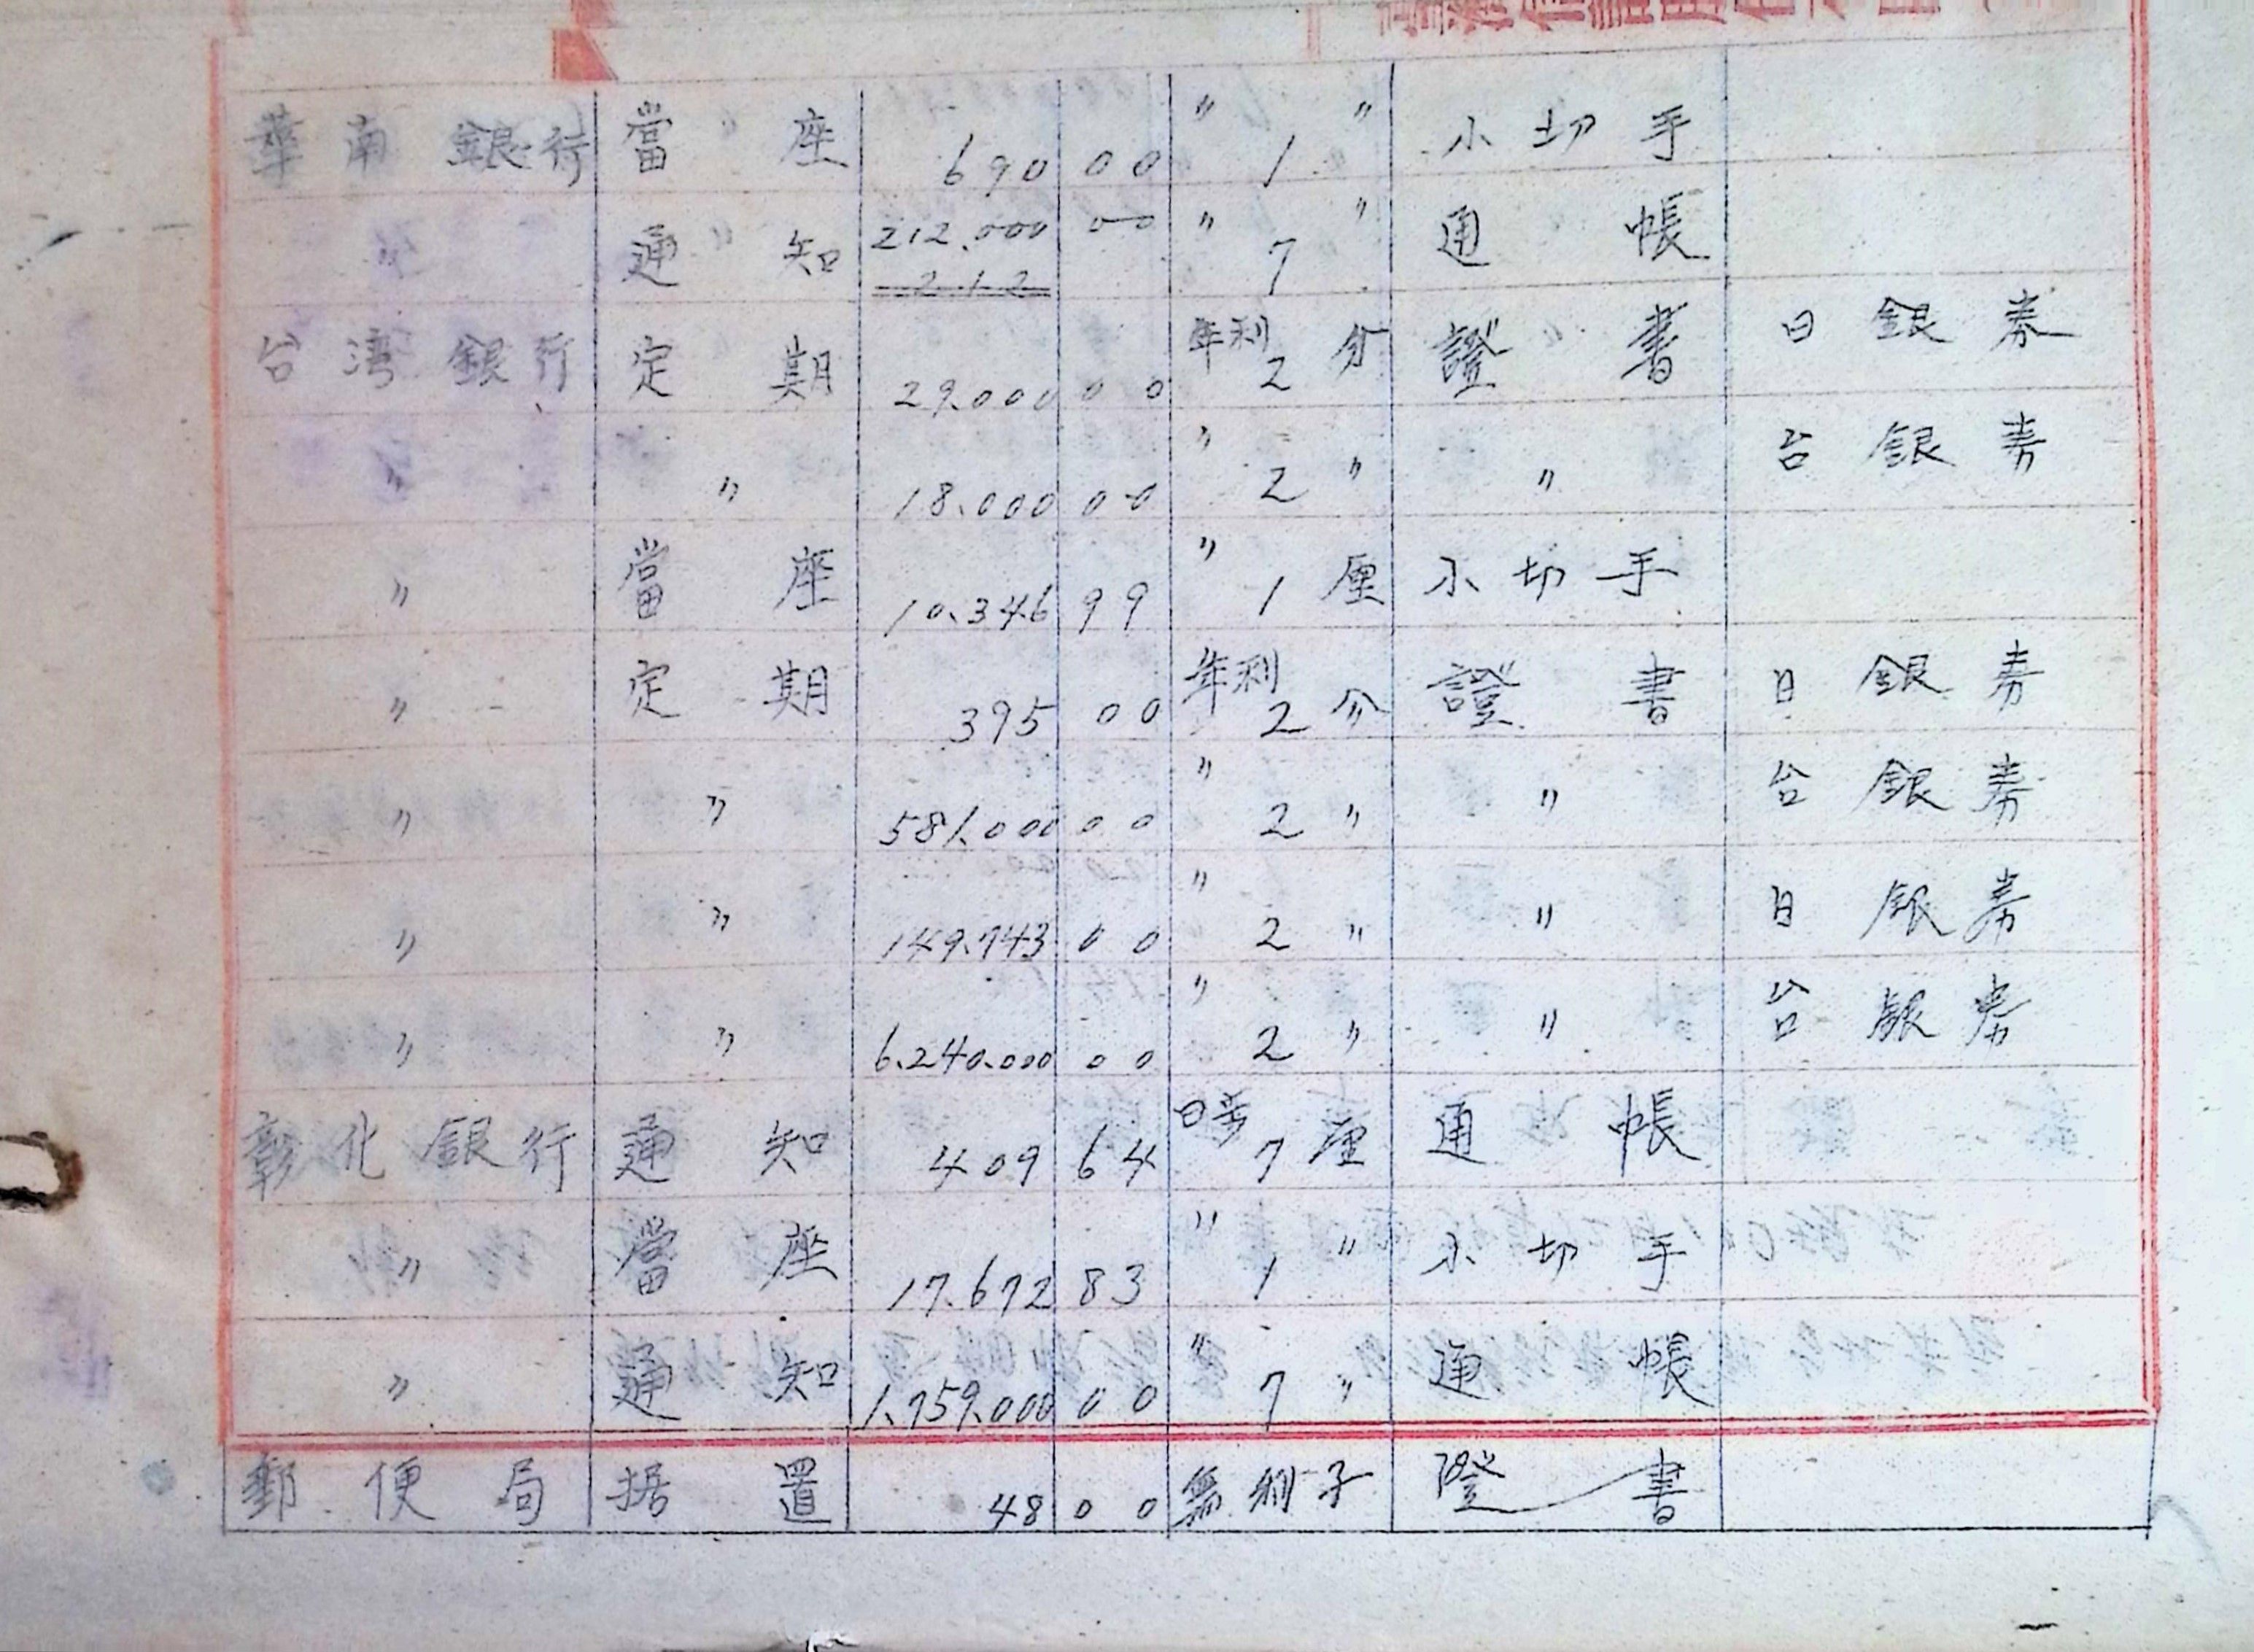 華南銀行 當座 690 00 〃 1 〃 小切手
〃 通知 212.000 00 〃 7 〃 通帳
212
台湾銀行 定期 29.000 00 年利 2 分 證書 日銀券
〃 〃 18.000 00 〃 2 〃 〃 台銀券
〃 當座 10.346 99 〃 1 厘 小切手
〃 定期 395 00 年利 2 分 證書 日銀券
〃 〃 581.000 00 〃 2 〃 〃 台銀券
〃 〃 149.743 00 〃 2 〃 〃 日銀券
〃 〃 6.240.000 00 〃 2 〃 〃 台銀券
彰化銀行 通知 409 64 日歩 7 厘 通帳
〃 當座 17.672 83 〃 1 〃 小切手
〃 通知 1.759.000 00 〃 7 〃 通帳
郵便局 据置 48 00 無利子 證書